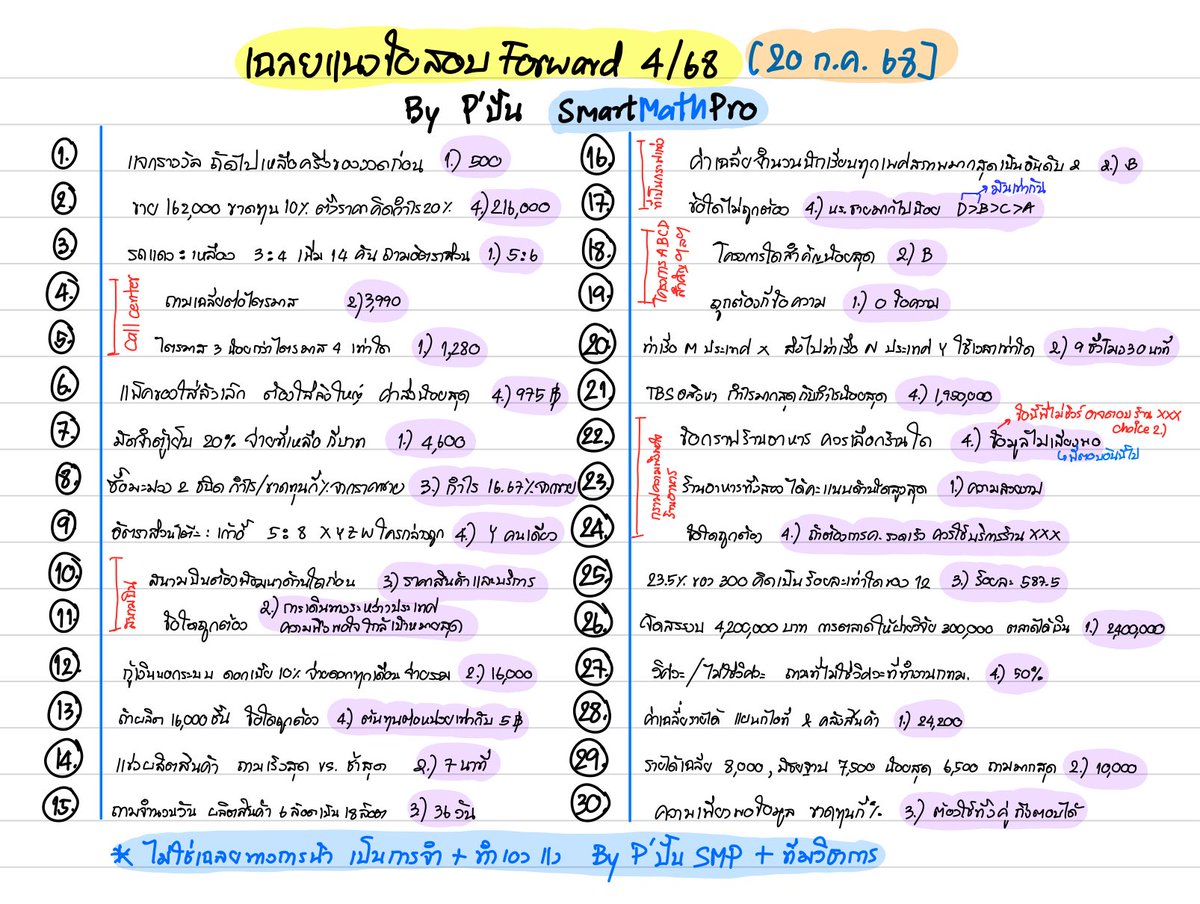 เฉลยแนวข้อสอบ Forward 4/68 [20 ก.ค. 68]
By P'ปั้น SmartMathPro
1. แจกรางวัล ถัดไปเหลือครึ่งของงวดก่อน 1.) 500
2. ขาย 162,000 ขาดทุน 10% ตั้งราคาคิดกำไร 20% 4.) 216,000
3. รถแดง : เหลือง 3:4 เพิ่ม 14 คัน ถามอัตราส่วน 1.) 5:6
Call center
4. ถามเฉลี่ยต่อไตรมาส 2.) 3,990
5. ไตรมาส 3 น้อยกว่าไตรมาส 4 เท่าใด 1.) 1,280
6. แพ็คของใส่ลังเล็ก ต้องใส่ลังใหญ่ ค่าส่งน้อยสุด 4.) 975 ฿
7. มัดจำตู้เย็น 20% จ่ายที่เหลือกี่บาท 1.) 4,600
8. ซื้อมะม่วง 2 ชนิด กำไร/ขาดทุนกี่%จากราคาขาย 3.) กำไร 16.67%จากขาย
9. อัตราส่วนโต๊ะ : เก้าอี้ 5:8 X Y Z W ใครกล่าวถูก 4.) Y คนเดียว
สนามบิน
10. สนามบินต้องพัฒนาด้านใดก่อน 3.) ราคาสินค้าและบริการ
11. ข้อใดถูกต้อง 2.) การเดินทางระหว่างประเทศ
ความพึงพอใจใกล้เป้าหมายสุด
12. กู้เงินนอกระบบ ดอกเบี้ย 10% จ่ายดอกทุกเดือน จ่ายรวม 2.) 16,000
13. ถ้าผลิต 16,000 ชิ้น ข้อใดถูกต้อง 4.) ต้นทุนต่อหน่วยเท่ากับ 5 ฿
14. แข่งผลิตสินค้า ถามเร็วสุด vs. ช้าสุด 2.) 7 นาที
15. ถามจำนวนวัน ผลิตสินค้า 6 ล้อตเป็น 18 ล้อต 3.) 36 วัน
ที่เป็นกราฟแท่ง
16. ค่าเฉลี่ยจำนวนนักเรียนทุกเพศสภาพมากสุดเป็นอันดับ 2 2.) B
มันเท่ากัน
17. ข้อใดไม่ถูกต้อง 4.) นร.ชายมากไปน้อย D>B>C>A
โครงการ ABCD สำคัญ ๆลๆ
18. โครงการใดสำคัญน้อยสุด 2.) B
19. ถูกต้องกี่ข้อความ 1.) 0 ข้อความ
20. ท่าเรือ M ประเทศ X ส่งไปท่าเรือ N ประเทศ Y ใช้เวลาเท่าใด 2.) 9 ชั่วโมง 30 นาที
21. TBS อสังหา กำไรมากสุดกับกำไรน้อยสุด 4.) 1,950,000
ข้อนี้พี่ไม่ชัวร์ อาจตอบร้าน XXX
choice 2.)
กราฟความพึงพอใจร้านอาหาร
22. ข้อกราฟร้านอาหาร ควรเลือกร้านใด 4.) ข้อมูลไม่เพียงพอ
พี่ตอบอันนี้ไป
23. ร้านอาหารทั้งสองได้คะแนนด้านใดสูงสุด 1.) ความสวยงาม
24. ข้อใดถูกต้อง 4.) ถ้าต้องการค.รวดเร็ว ควรใช้บริการร้าน XXX
25. 23.5% ของ 300 คิดเป็นร้อยละเท่าใดของ 12 3.) ร้อยละ 587.5
26. จัดสรรงบ 4,200,000 บาท การตลาดให้ฝ่ายวิจัย 300,000 ตลาดได้เงิน 1.) 2,400,000
27. วิศวะ/ไม่ใช่วิศวะ ถามที่ไม่ใช่วิศวะที่ทำงานกทม. 4.) 50%
28. ค่าเฉลี่ยรายได้ แผนกไอที & คลังสินค้า 1.) 24,200
29. รายได้เฉลี่ย 8,000, มัธยฐาน 7,500 น้อยสุด 6,500 ถามมากสุด 2.) 10,000
30. ความเพียงพอข้อมูล ขาดทุนกี่% 3.) ต้องใช้ทั้งคู่ ถึงตอบได้
* ไม่ใช่เฉลยทางการน้า เป็นการจำ + ทำเองแง By P'ปั้น SMP + ทีมวิชาการ